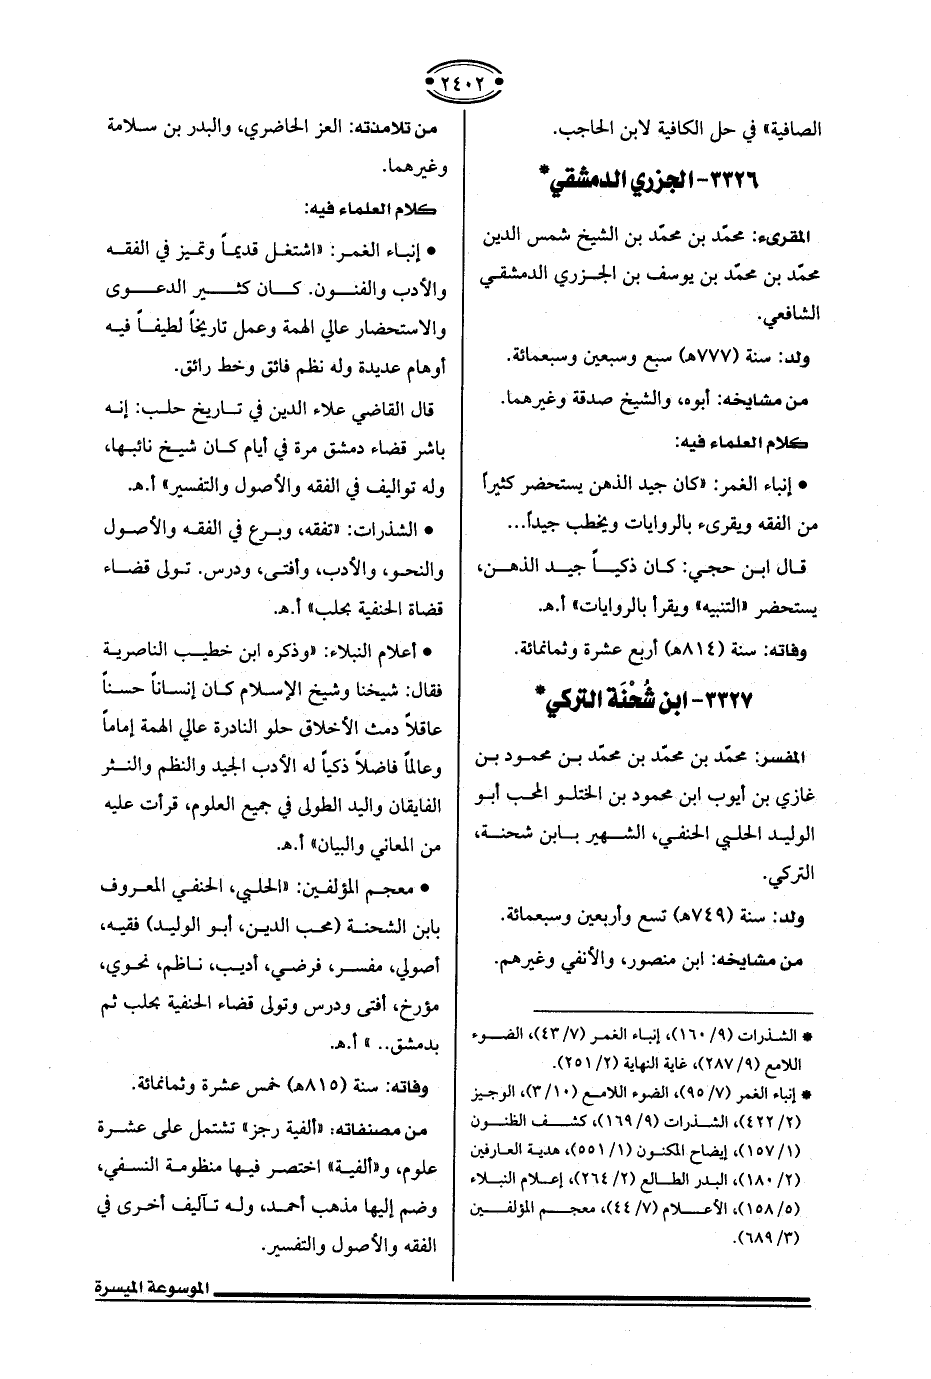 ٢٤٠٢
الصافية» في حل الكافية لابن الحاجب.
٣٣٢٦- الجزري الدمشقي*
المقرىء: محمّد بن محمّد بن الشيخ شمس الدين
محمّد بن محمّد بن يوسف بن الجزري الدمشقي
الشافعي.
ولد: سنة (٧٧٧هـ) سبع وسبعين وسبعمائة.
من مشايخه: أبوه، والشيخ صدقة وغيرهما.
كلام العلماء فيه:
• إنباء الغمر: «كان جيد الذهن يستحضر كثيراً
من الفقه ويقرىء بالروايات ويخطب جيداً...
قال ابن حجي: كان ذكياً جيد الذهن،
يستحضر «التنبيه» ويقرأ بالروايات» أ.هـ.
وفاته: سنة (٨١٤هـ) أربع عشرة وثمانمائة.
٣٣٢٧- ابن شُحْنَة التركي*
المفسر: محمّد بن محمّد بن محمّد بن محمود بن
غازي بن أيوب ابن محمود بن الختلو المحب أبو
الوليد الحلبي الحنفي، الشهير بابن شحنة،
التركي.
ولد: سنة (٧٤٩هـ) تسع وأربعين وسبعمائة.
من مشايخه: ابن منصور، والأنفي وغيرهم.
* الشذرات (٩/ ١٦٠)، إنباء الغمر (٧/ ٤٣)، الضوء
اللامع (٩/ ٢٨٧)، غاية النهاية (٢/ ٢٥١).
* إنباء الغمر (٧/ ٩٥)، الضوء اللامع (١٠/ ٣)، الوجيز
(٢/ ٤٢٢)، الشذرات (٩/ ١٦٩)، كشف الظنون
(١/ ١٥٧)، إيضاح المكنون (١/ ٥٥١)، هدية العارفين
(٢/ ١٨٠)، البدر الطالع (٢/ ٢٦٤)، إعلام النبلاء
(٥/ ١٥٨)، الأعلام (٧/ ٤٤)، معجم المؤلفين
(٣/ ٦٨٩).
من تلامذته: العز الحاضري، والبدر بن سلامة
وغيرهما.
كلام العلماء فيه:
• إنباء الغمر: «اشتغل قديماً وتميز في الفقه
والأدب والفنون. كان كثير الدعوى
والاستحضار عالي الهمة وعمل تاريخاً لطيفاً فيه
أوهام عديدة وله نظم فائق وخط رائق.
قال القاضي علاء الدين في تاريخ حلب: إنه
باشر قضاء دمشق مرة في أيام كان شيخ نائبها،
وله تواليف في الفقه والأصول والتفسير» أ.هـ.
• الشذرات: «تفقه، وبرع في الفقه والأصول
والنحو، والأدب، وأفتى، ودرس. تولى قضاء
قضاة الحنفية بحلب» أ.هـ.
• أعلام النبلاء: «وذكره ابن خطيب الناصرية
فقال: شيخنا وشيخ الإسلام كان إنساناً حسناً
عاقلاً دمث الأخلاق حلو النادرة عالي الهمة إماماً
وعالماً فاضلاً ذكياً له الأدب الجيد والنظم والنثر
الفايقان واليد الطولى في جميع العلوم، قرأت عليه
من المعاني والبيان» أ.هـ.
• معجم المؤلفين: «الحلبي، الحنفي المعروف
بابن الشحنة (محب الدين، أبو الوليد) فقيه،
أصولي، مفسر، فرضي، أديب، ناظم، نحوي،
مؤرخ، أفتى ودرس وتولى قضاء الحنفية بحلب ثم
بدمشق..» أ.هـ.
وفاته: سنة (٨١٥هـ) خمس عشرة وثمانمائة.
من مصنفاته: «ألفية رجز» تشتمل على عشرة
علوم، و«ألفية» اختصر فيها منظومة النسفي،
وضم إليها مذهب أحمد، وله تآليف أخرى في
الفقه والأصول والتفسير.
الموسوعة الميسرة